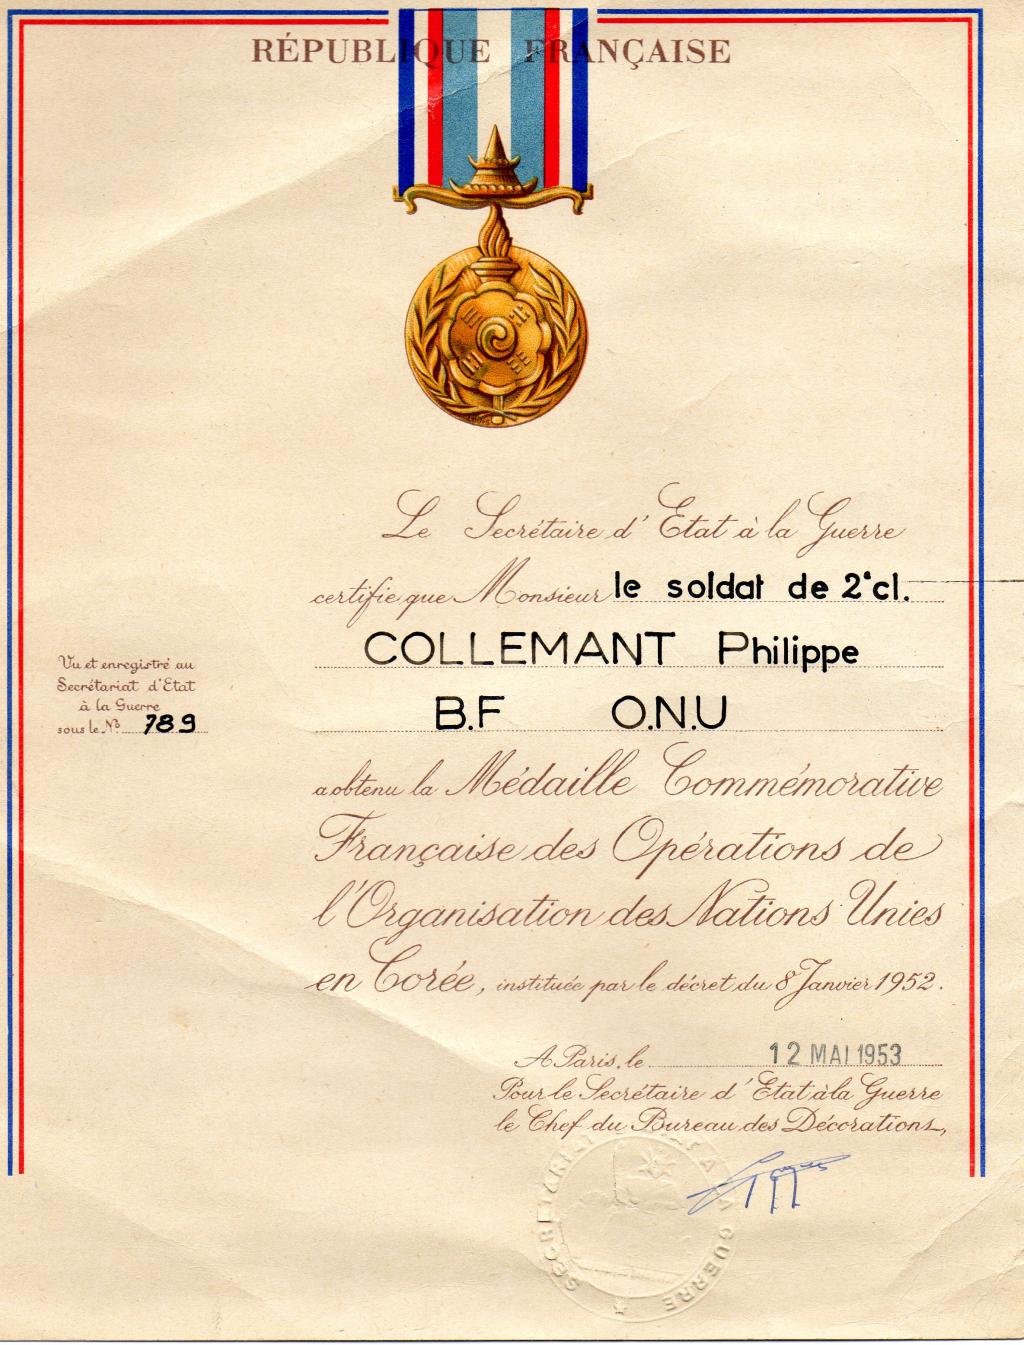 RÉPUBLIQUE FRANÇAISE
Le Secrétaire d'Etat à la Guerre
certifie que Monsieur le soldat de 2°cl.
COLLEMANT Philippe
B.F O.N.U
Vu et enregistré au
Secrétariat d'Etat
à la Guerre
sous le Nº 789
a obtenu la Médaille Commémorative
Française des Opérations de
l'Organisation des Nations Unies
en Corée, instituée par le décret du 8 Janvier 1952.
A Paris, le 12 MAI 1953
Pour le Secrétaire d'Etat à la Guerre
le Chef du Bureau des Décorations,
SECRETARIAT D'ETAT A LA GUERRE